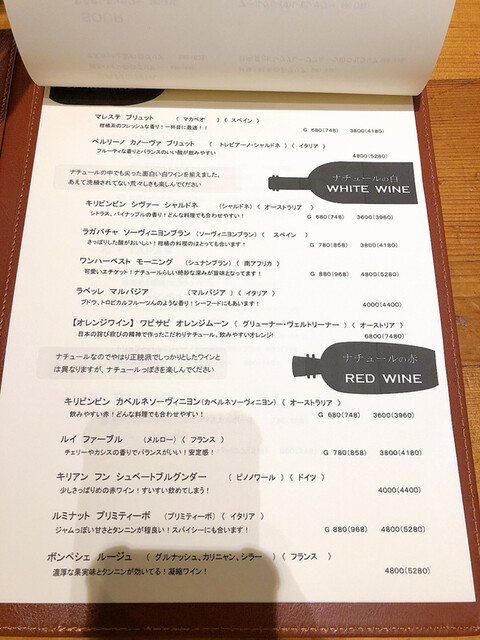 マレステ ブリュット （ マカベオ ）〈 スペイン 〉
柑橘系のフレッシュな香り！一杯目に最適！！ G 680(748) 3800(4180)
ベルリーノ カノーヴァ ブリュット （ トレビアーノ・シャルドネ ）〈 イタリア 〉
フルーティな香りとバランスのいい酸が飲みやすい 4800(5280)
ナチュールの中でも尖った面白い白ワインを揃えました。
あえて洗練されてない荒々しさも楽しんでください
ナチュールの白
WHITE WINE
キリビンビン シヴァー シャルドネ （シャルドネ）〈 オーストラリア 〉
シトラス、パイナップルの香り！どんな料理でも合わせやすい！ G 680(748) 3600(3960)
ラガバチャ ソーヴィニヨンブラン （ソーヴィニヨンブラン）〈 スペイン 〉
さっぱりした酸がおいしい！柑橘の料理のほとって も合います！ G 780(858) 3800(4180)
ワンハーベスト モーニング （シュナンブラン）〈 南アフリカ 〉
可愛いエチケット！ナチュールらしい絶妙な深みが旨味となってます！ G 880(968) 4800(5280)
ラベッレ マルバジア （マルバジア）〈 イタリア 〉
ブドウ、トロピカルフルーツんのような香り！シーフードにもあいます！ 4000(4400)
【オレンジワイン】 ワビサビ オレンジムーン （ グリューナー・ヴェルトリーナー ）〈 オーストリア 〉
日本の詫び寂びの精神で作ったこだわりナチュール。飲みやすいオレンジ! 6800(7480)
ナチュールなのでやはり正統派でしっかりとしたワインと
は異なりますが、ナチュールっぽさを楽しんでください
ナチュールの赤
RED WINE
キリビンビン カベルネソーヴィニヨン（カベルネソーヴィニヨン）〈 オーストラリア 〉
飲みやすい赤！どんな料理でも合わせやすい！ G 680(748) 3600(3960)
ルイ ファーブル （メルロー）〈 フランス 〉
チェリーやカシスの香りでバランスがいい！安定感！ G 780(858) 3800(4180)
キリアン フン シュペートブルグンダー （ ピノノワール ）〈 ドイツ 〉
少しさっぱりめの赤ワイン！すいすい飲めてしまう！ 4000(4400)
ルミナット プリミティーボ （プリミティーボ）〈 イタリア 〉
ジャムっぽい甘さとタンニンが程良い！スパイシーにも合います！ G 880(968) 4800(5280)
ボンペシェ ルージュ （ グルナッシュ、カリニャン、シラー ）〈 フランス 〉
濃厚な果実味とタンニンが効いてる！凝縮ワイン！ 4800(5280)